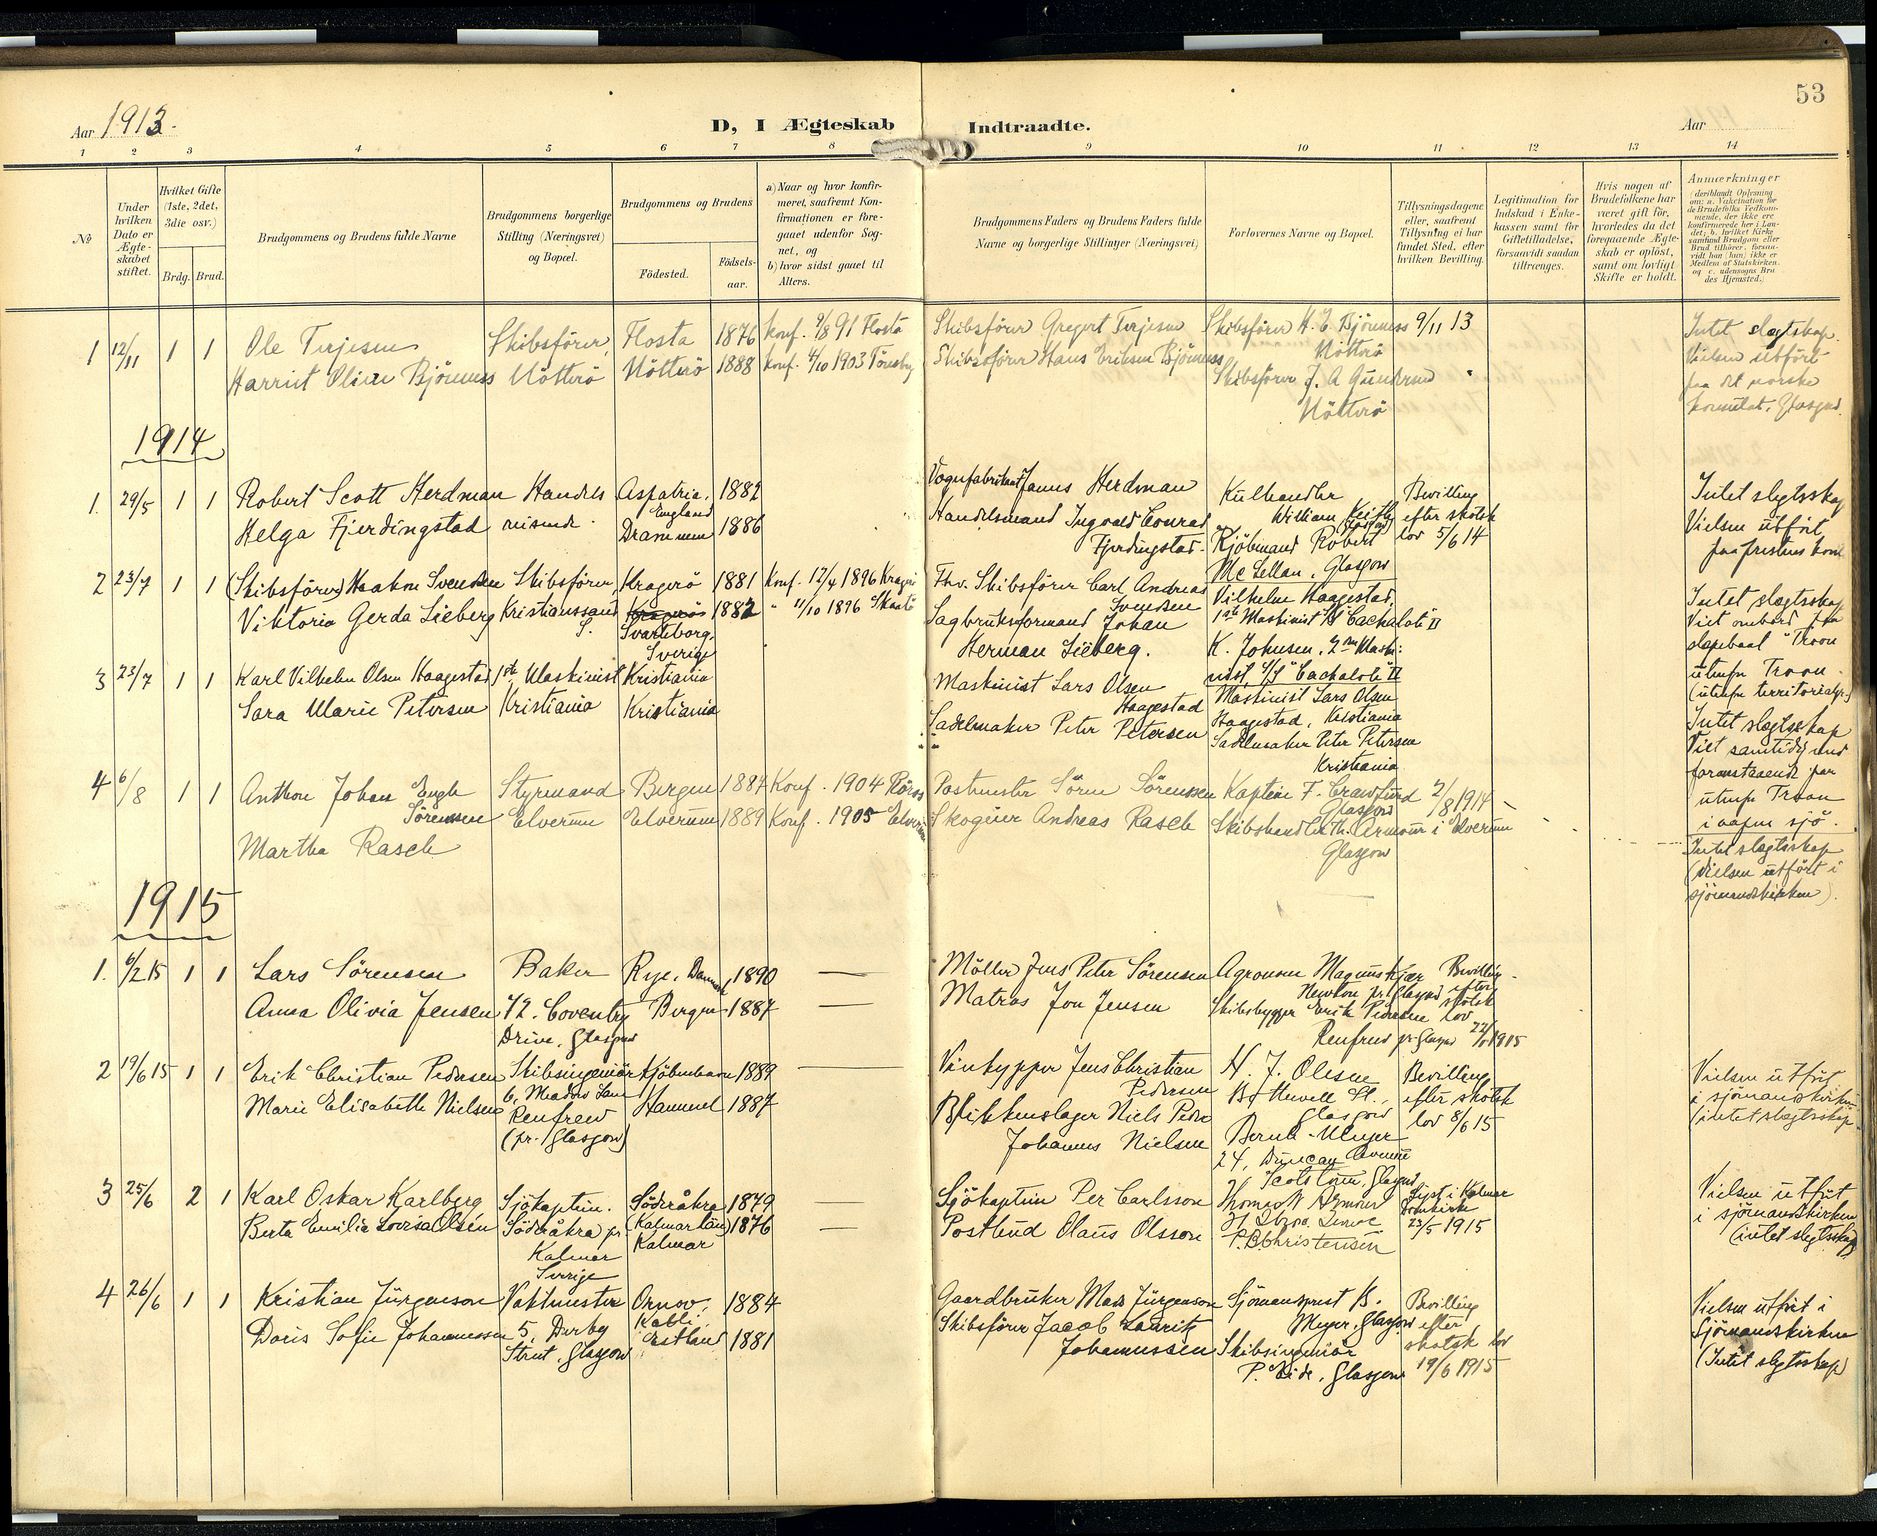 53
Aar 1913.
D, I Ægteskab Indtraadte.
Aar
1 2 3 4 5 6 7 8 9 10 11 12 13 14
No
Under hvilken Dato er Ægteskabet stiftet.
Hvilket Gifte (1ste, 2det, 3die osv.)
Brdg. Brud.
Brudgommens og Brudens fulde Navne
Brudgommens borgerlige Stilling (Næringsvei) og Bopæl.
Brudgommens og Brudens
Fødested.
Fødselsaar.
a) Naar og hvor konfirmeret, saafremt Konfirmationen er foregaaet udenfor Sognet, og
b) hvor sidst gaaet til Alters.
Brudgommens Faders og Brudens Faders fulde Navne og borgerlige Stillinger (Næringsvei)
Forlovernes Navne og Bopæl.
Tillysningsdagene eller, saafremt Tillysning ei har fundet Sted, efter hvilken Bevilling.
Legitimation for Indskud i Enkekassen samt for Giftetilladelse, forsaavidt saadan tiltrænges.
Hvis nogen af Brudefolkene har været gift før, hvorledes da det foregaaende Ægteskab er opløst, samt om lovligt Skifte er holdt.
Anmærkninger
1 12/11 1 1
Ole Terjesen
Harriet Olivie Bjönness
Skibsförer,
Nötterö
Flosta 1876
Nötterö 1888
Konf. 9/8 91 Flosta
Konf. 4/10 1903 Tönsberg
Skibsförer Gregert Terjesen
Skibsförer Hans Eriksen Bjönness
Skibsförer H. E. Bjönness
Nötterö
Skibsförer J. A Gundersen
Nötterö
9/11 13
Intet slegtskap.
Vielsen utfört
paa det norske
konsulat, Glasgow.
1914
1. 29/5 1 1
Robert Scott Herdman
Helga Fjerdingstad
Handels
reisende.
Aspatria, England 1882
Drammen 1886
Vognfabrikant James Herdman
Handelsmand Ingvald Conrad
Fjerdingstad.
Kulhandler
William Keith
Glasgow
Kjöbmand Robert
Mc Lellan, Glasgow
Bevilling
efter skotsk
lov 5/6 14
Intet slegtsskap
Vielsen utfört
2 23/7 1 1
(Skibsförer) Haakon Svendsen
Viktoria Gerda Sieberg
Skibsförer,
Kristianssand
S.
Kragerö 1881
Kragerö 1882
Svarteborg,
Sverige
Konf. 12/4 1896 Kragerö
" 11/10 1896 Skaatö
Fhv. Skibsförer Carl Andreas
Svendsen
Sagbruksformand Johan
Herman Sieberg.
Vilhelm Haagestad,
1ste Maskinist S/S "Cachalote II
K. Johnsen, 2den Maski-
nist S/S "Cachalote II
Intet slegtsskap
Viet ombord paa
slæpebaat "Troon
utenfor Troon.
(utenfor territorialgr.)
3 23/7 1 1
Karl Vilhelm Olsen Haagestad
Sara Marie Petersen
1ste Maskinist
Kristiania
Kristiania
Kristiania
Maskinist Lars Olsen
Haagestad
Sadelmaker Peter Petersen
Maskinist Lars Olsen
Haagestad, Kristiania
Sadelmaker Peter Petersen
Kristiania
Intet slegtsskap
Viet samtidig med
foranstaaende par
utenfor Troon
i aapen sjö.
4 6/8 1 1
Anthon Johan Engh
Sörenssen
Martha Rasch
Styrmand
Elverum
Bergen 1887
Elverum 1889
Konf. 1904 Röros
Konf. 1905 Elverum
Postmester Sören Sörenssen
Skogeier Andreas Rasch
Kaptein F. Crawfurd
Glasgow
Skibshandler Th. Armour
Glasgow
2/8 1914
i Elverum
Intet slegtsskap
(Vielsen utfört i
sjömandskirken).
1915
1. 6/2 15 1 1
Lars Sörensen
Anna Olivia Jensen
Baker
72. Coventry
Drive, Glasgow
Rye, Danmark 1890
Bergen 1887
Möller Jens Peter Sörensen
Matros Jon Jensen
Agronom Magnus Kjær
Newton pr. Glasgow
Skibsbygger Erik Pedersen
Renfrew pr. Glasgow
Bevilling
efter
skotsk
lov
22/1 1915
2 19/6 15 1 1
Erik Christian Pedersen
Marie Elisabeth Nielsen
Skibsingeniör
6, Meadow Lane
Renfrew
(pr. Glasgow)
Kjöbenhavn 1889
Hammel 1887
Vinkypper Jens Christian
Pedersen
Blikkenslager Niels Peder
Johannes Nielsen
H. J. Olesen
Bothwell St.,
Glasgow
Bernh. Meyer
24, Duncan Avenue
Scotstoun, Glasgow
Bevilling
efter skotsk
lov 8/6 15
Vielsen utfört
i sjömandskirken
(intet slegtsskap
3 25/6 2 1
Karl Oskar Karlberg
Berta Emilia Lovisa Olsén
Sjökaptein.
Söderåkra pr.
Kalmar
Sverige
Söderåkra 1879
(Kalmar län) 1876
Kalmar
Sjökaptein Per Carlsson
Postbud Olaus Olsson
Thomas H Armour
P. B Christensen
Lyst i Kalmar
Domkirke
23/5 1915
Vielsen utfört
i sjömandskirken
(intet slegtsskap)
4 26/6 1 1
Kristian Jürgenson
Doris Sofie Johannessen
Vaktmester
5, Derby
Street, Glasgow
Ornov, 1884
Kabli,
Estland 1881
Gaardbruker Mads Jürgenson
Skibsförer Jacob Lauritz
Johannessen
Sjömansprest B.
Meyer, Glasgow
Skibsingeniör
P. Eide, Glasgow
Bevilling
efter
skotsk lov
19/6 1915
Vielsen utfört i
Sjömandskirken
(Intet slegtsskap)